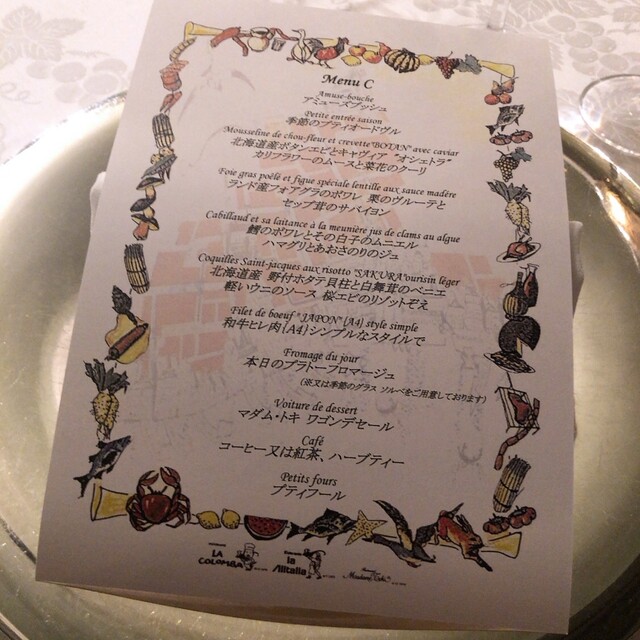 Menu C
Amuse-bouche
アミューズブッシュ
Petite entrée saison
季節のプティオードヴル
Mousseline de chou-fleur et crevette"BOTAN" avec caviar
北海道産ボタンエビとキャヴィア "オシェトラ"
カリフラワーのムースと菜花のクーリ
Foie gras poêlé et figue spéciale lentille aux sauce madère
ランド産フォアグラのポワレ 栗のヴルーテと
セップ茸のサバイヨン
Cabillaud et sa laitance à la meunière jus de clams au algue
鱈のポワレとその白子のムニエル
ハマグリとあおさのりのジュ
Coquilles Saint-jacques aux risotto "SAKURA"oursin léger
北海道産 野付ホタテ貝柱と白舞茸のベニエ
軽いウニのソース 桜エビのリゾットぞえ
Filet de boeuf "JAPON" {A4} style simple
和牛ヒレ肉{A4}シンプルなスタイルで
Fromage du jour
本日のプラトーフロマージュ
(※又は季節のグラス ソルベをご用意しております)
Voiture de dessert
マダム・トキ ワゴンデセール
Café
コーヒー又は紅茶、ハーブティー
Petits fours
プティフール
LA COLOMBA
la Alitalia
Madame Toki